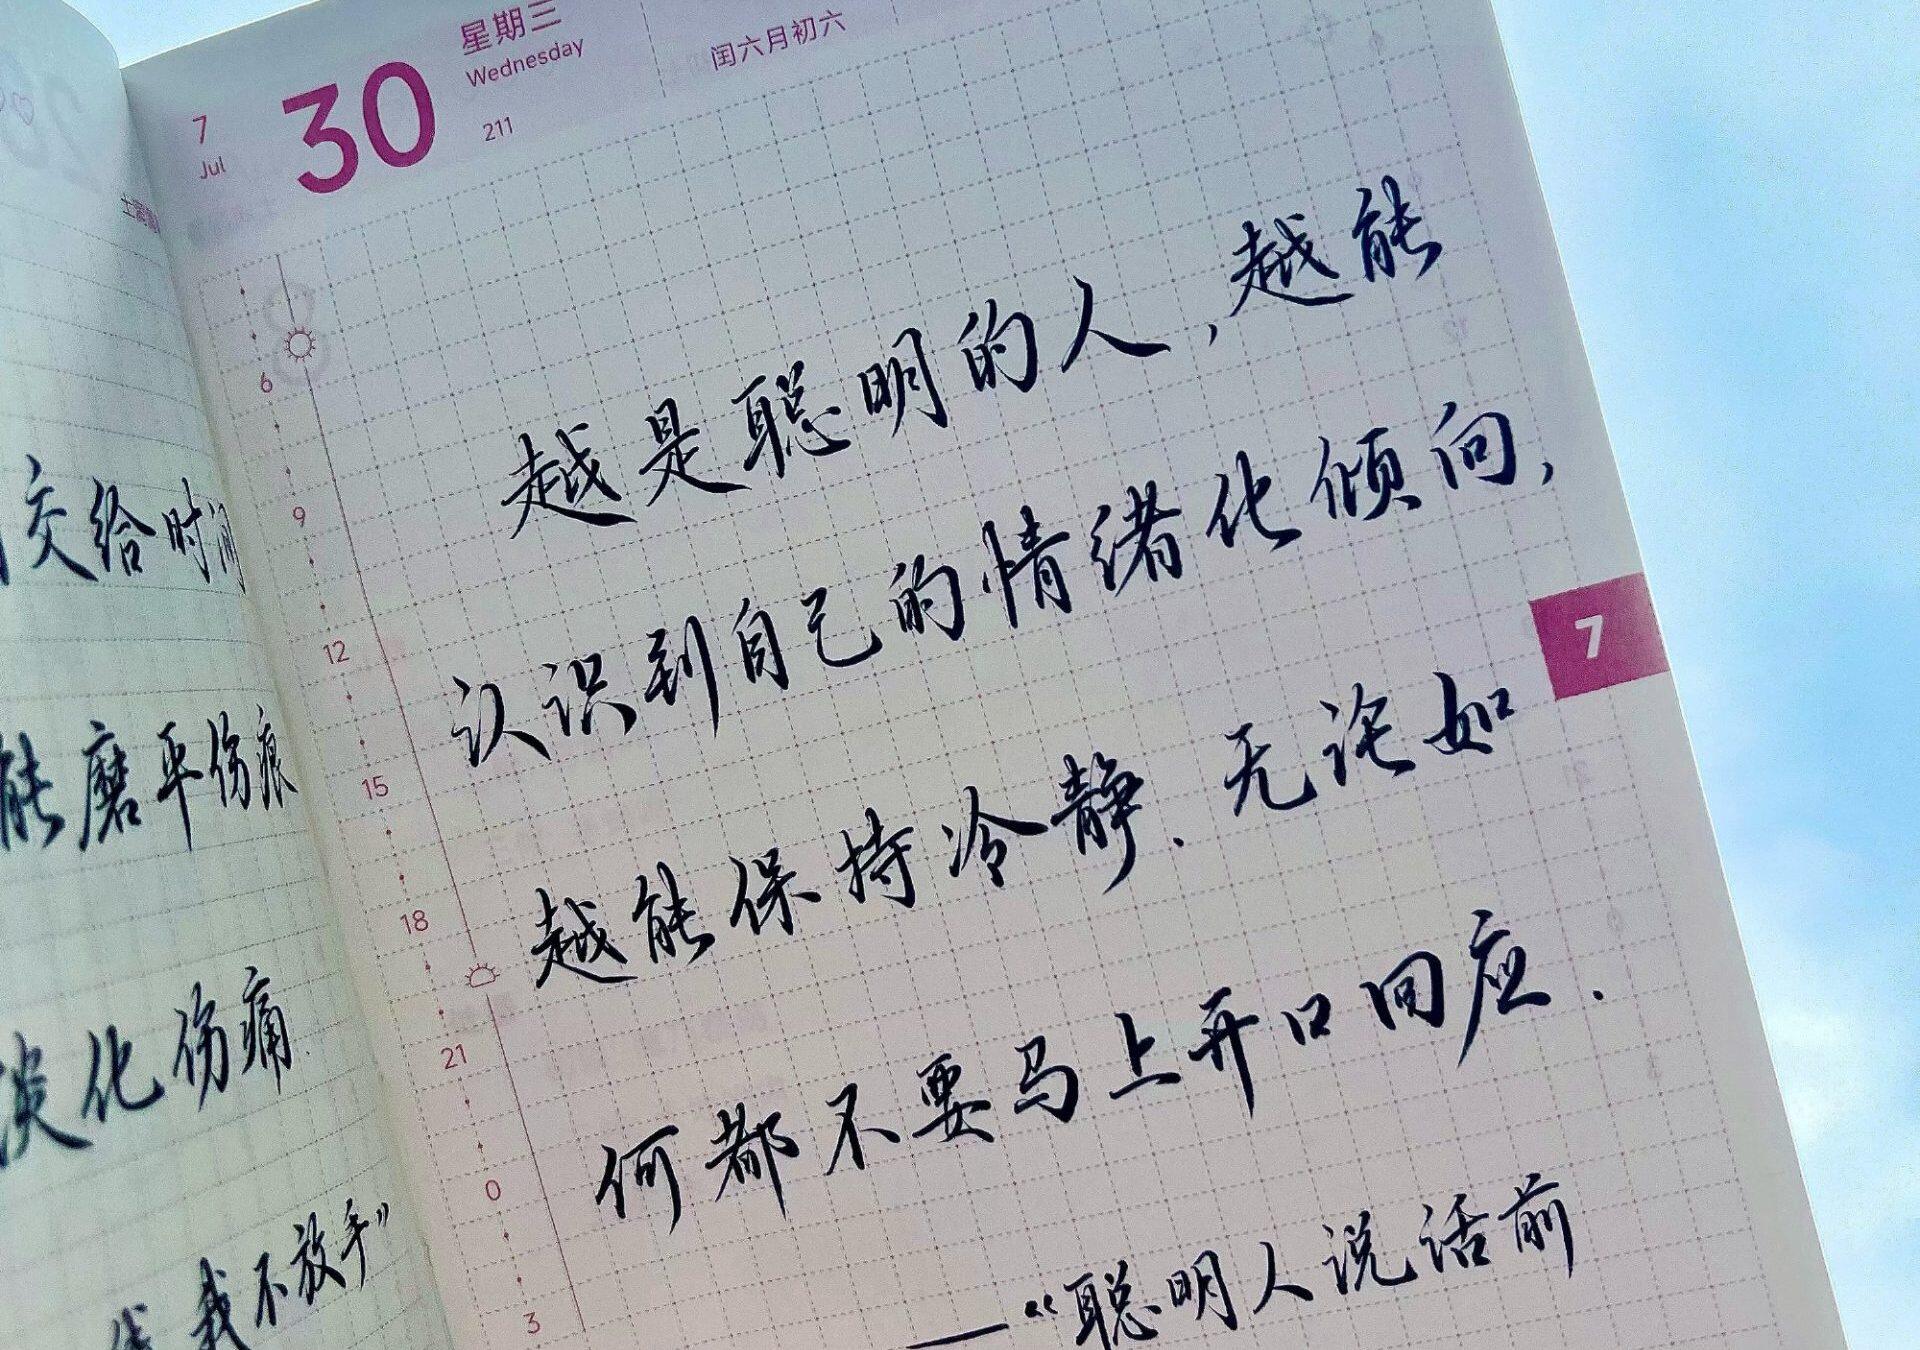 交给时间
能磨平伤痕
淡化伤痛
我不放手”
7
Jul
30
星期三
Wednesday
211
闰六月初六
6
9
12
15
18
21
0
3
越是聪明的人,越能
认识到自己的情绪化倾向,
越能保持冷静.无论如
何都不要马上开口回应.
——“聪明人说话前
7